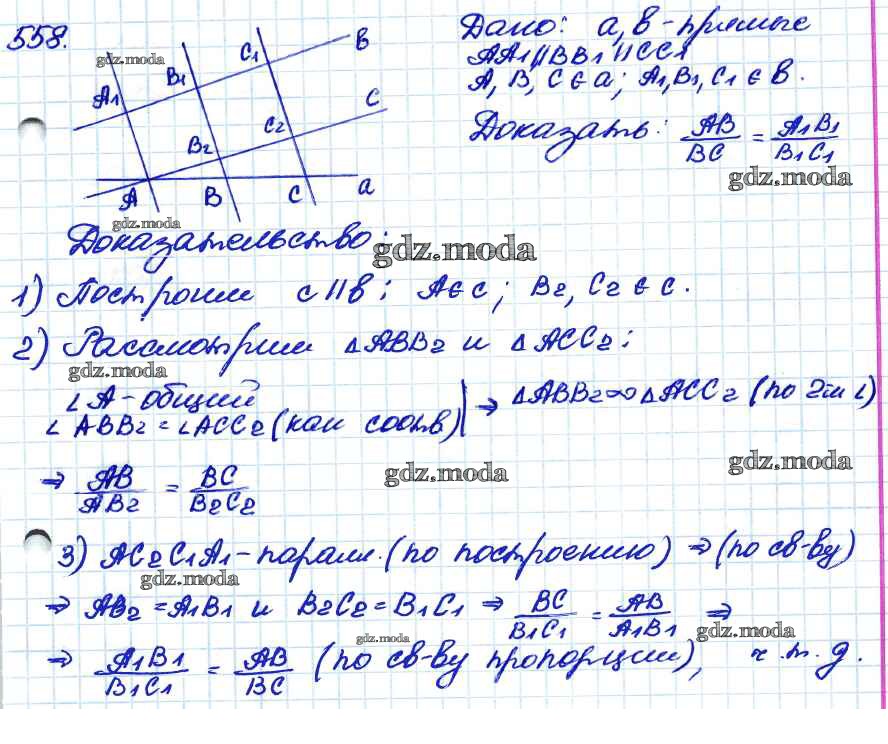 558.
gdz.moda
A1 B1 C1 в
C
B2 C2
A B C a
gdz.moda
Дано: a, в - прямые
AA1 || BB1 || CC1
A, B, C ∈ a; A1, B1, C1 ∈ в.
Доказать: AB/BC = A1B1/B1C1
gdz.moda
Доказательство:
gdz.moda
1) Построим c || в; A ∈ c; B2, C2 ∈ c.
2) Рассмотрим △ABB2 и △ACC2:
gdz.moda
∠A - общий
∠ABB2 = ∠ACC2 (как соотв) ⇒ △ABB2 ∞ △ACC2 (по 2-м ∠)
⇒ AB/AB2 = BC/B2C2
gdz.moda
gdz.moda
3) AC2C1A1 - паралл. (по построению) ⇒ (по св-ву)
gdz.moda
⇒ AB2 = A1B1 и B2C2 = B1C1 ⇒ BC/B1C1 = AB/A1B1 ⇒
gdz.moda
gdz.moda
⇒ A1B1/B1C1 = AB/BC (по св-ву пропорции), ч.т.д.